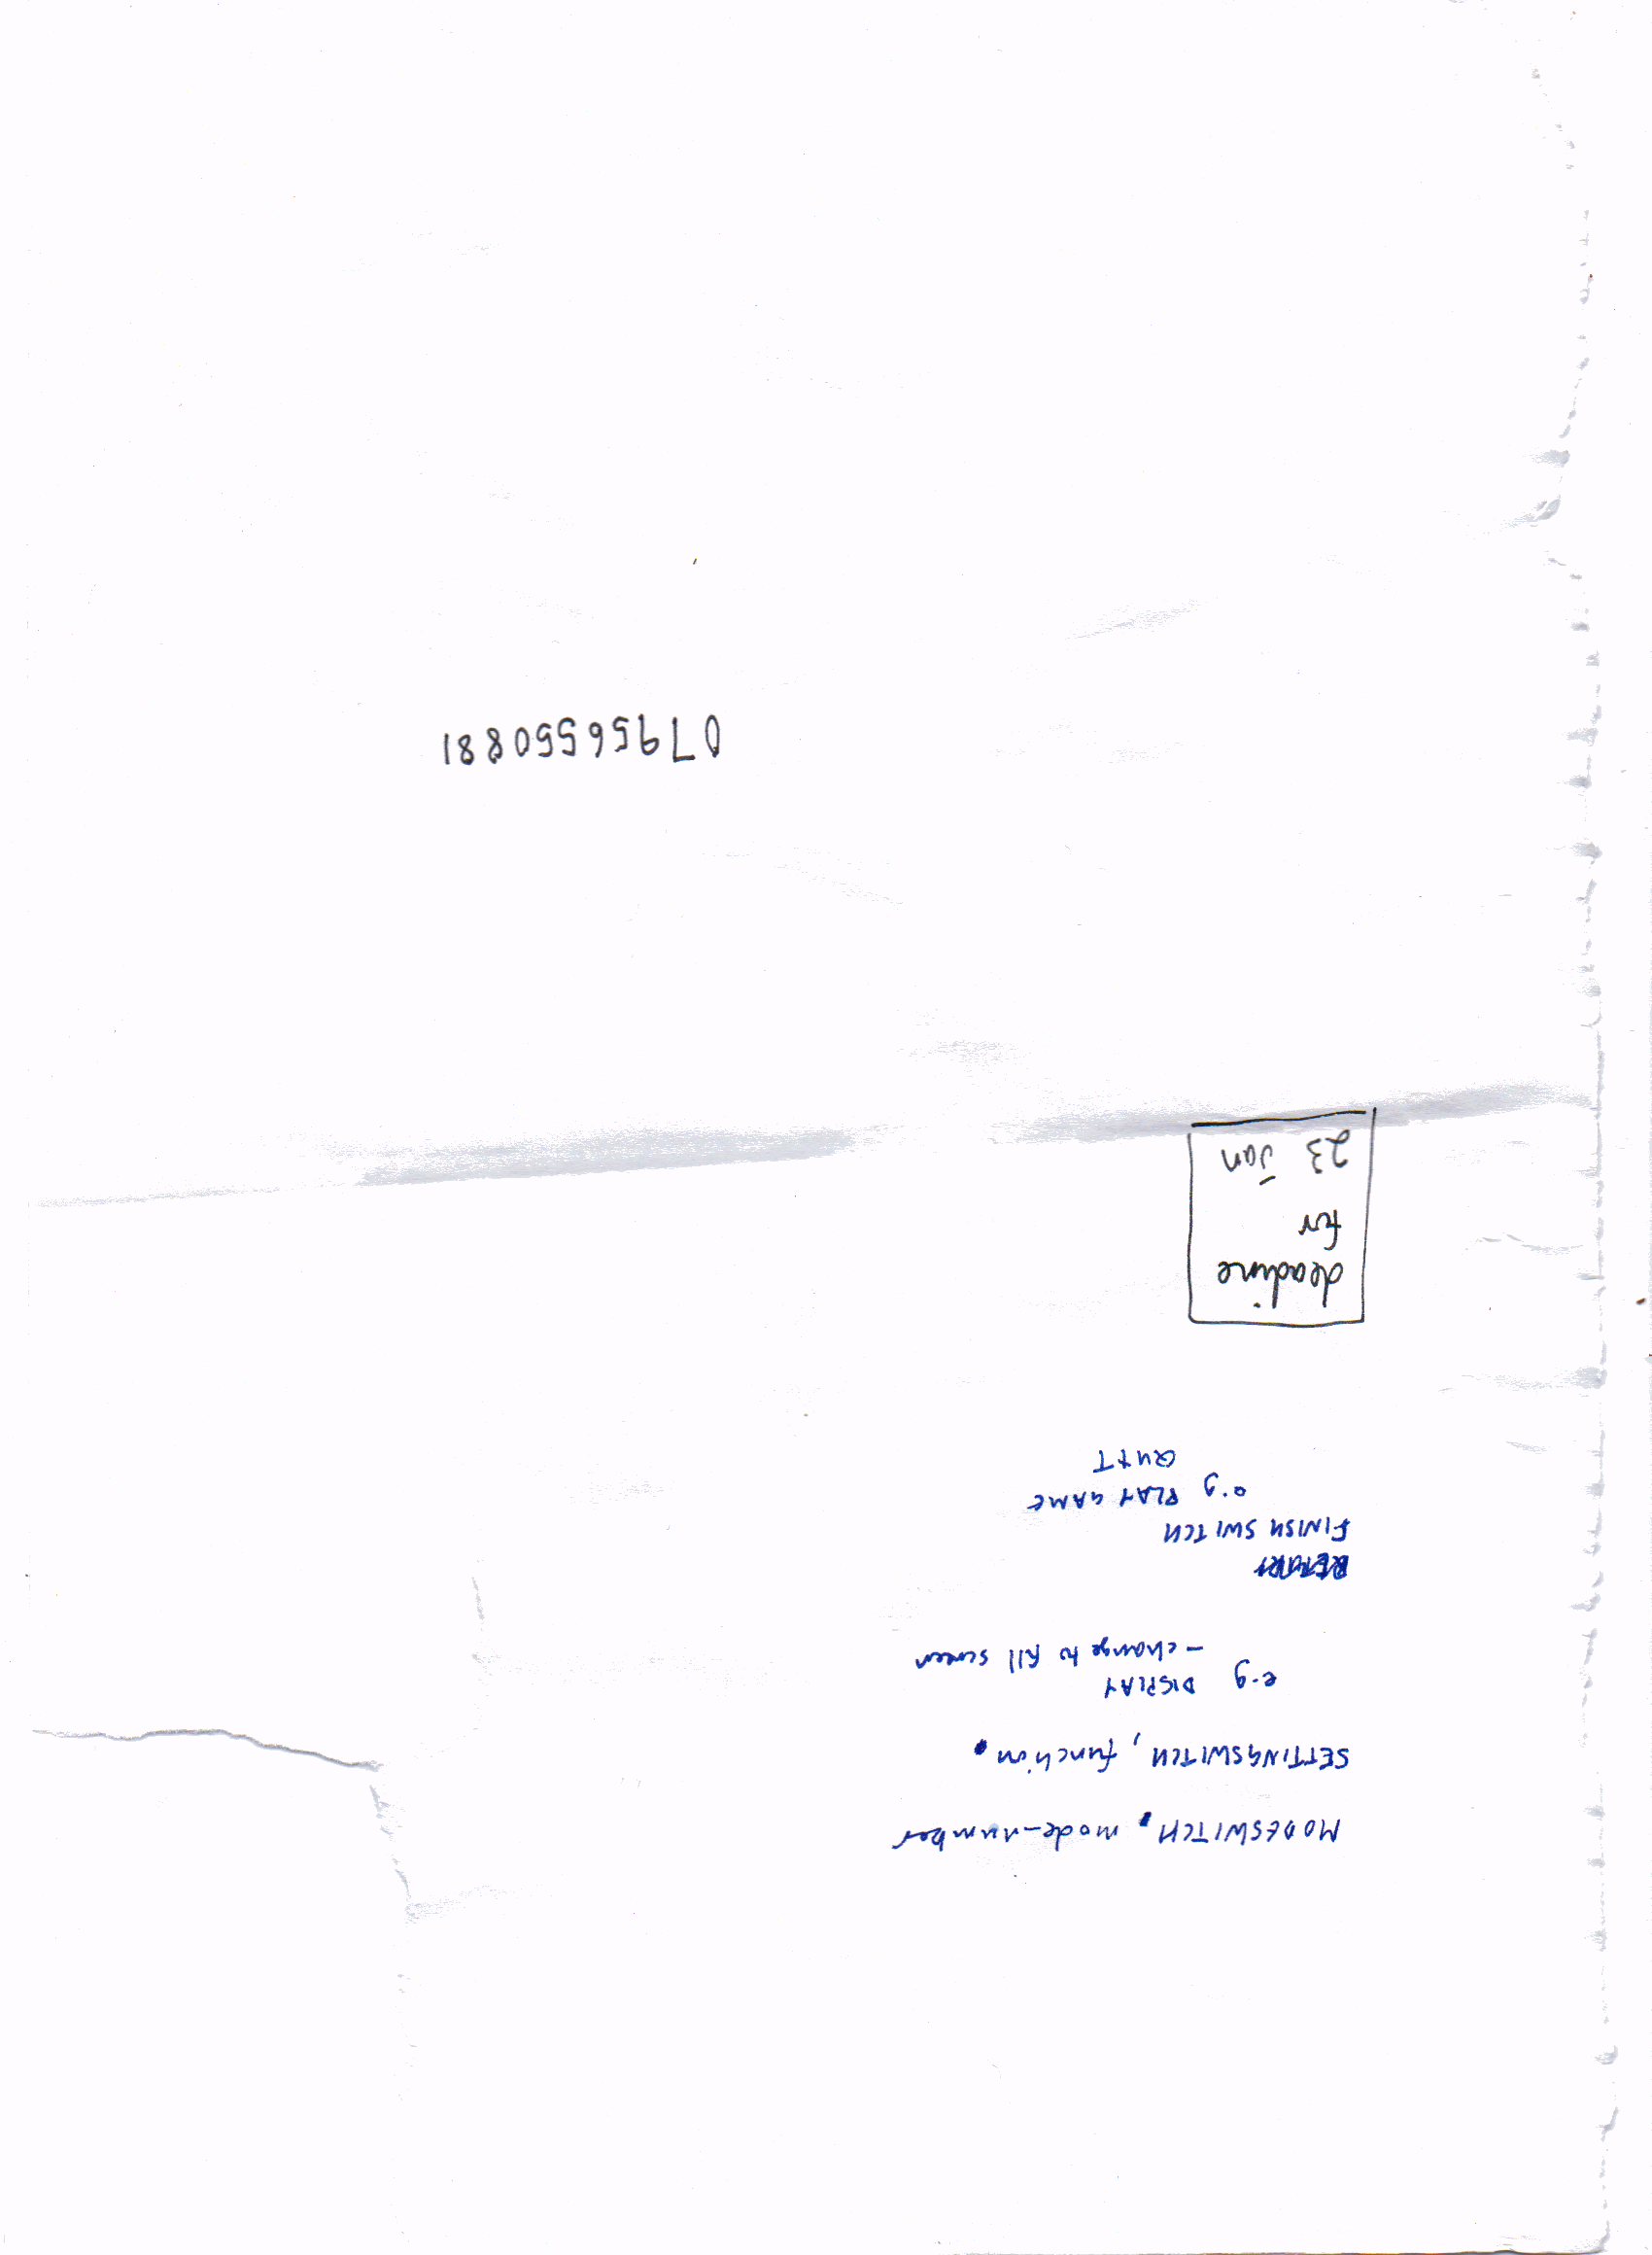 MODESWITCH, mode-number
SETTINGSWITCH, function.
e.g DISPLAY
- change to full screen
FINISH SWITCH
e.g PLAY GAME
QUIT
deadline
for
23 Jan
07956550881